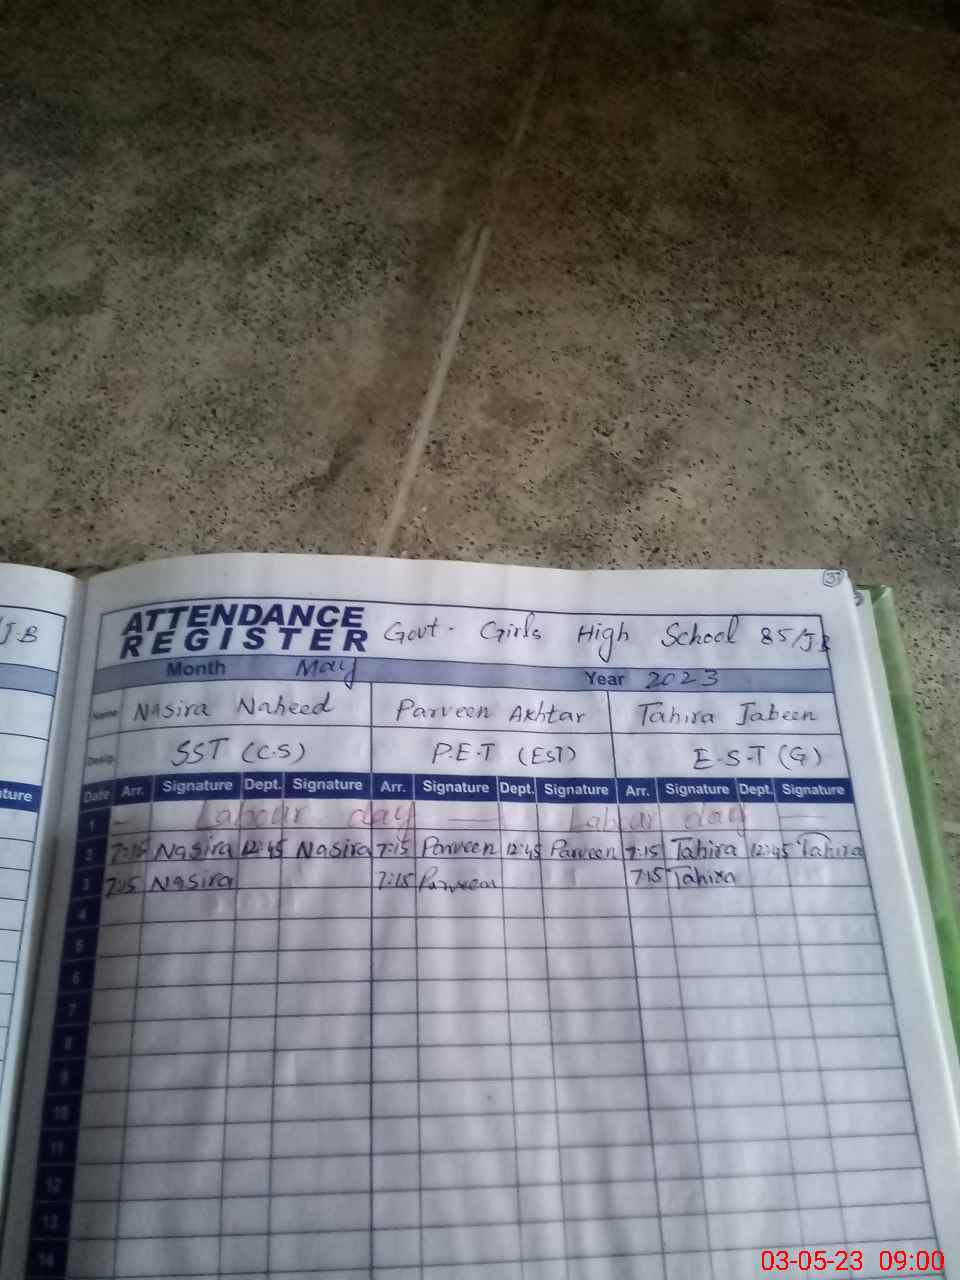 37
ATTENDANCE
REGISTER Govt. Girls High School 85/JB
/J.B
Month May Year 2023
Name Nasira Naheed Parveen Akhtar Tahira Jabeen
Desig. SST (C.S) P.E.T (EST) E.S.T (G)
ture
Date Arr. Signature Dept. Signature Arr. Signature Dept. Signature Arr. Signature Dept. Signature
1 — Labour day — Labour day —
2 7:15 Nasira 12:45 Nasira 7:15 Parveen 12:45 Parveen 7:15 Tahira 12:45 Tahira
3 7:15 Nasira 7:15 Parveen 7:15 Tahira
4
5
6
7
8
9
10
11
12
13
14
03-05-23 09:00